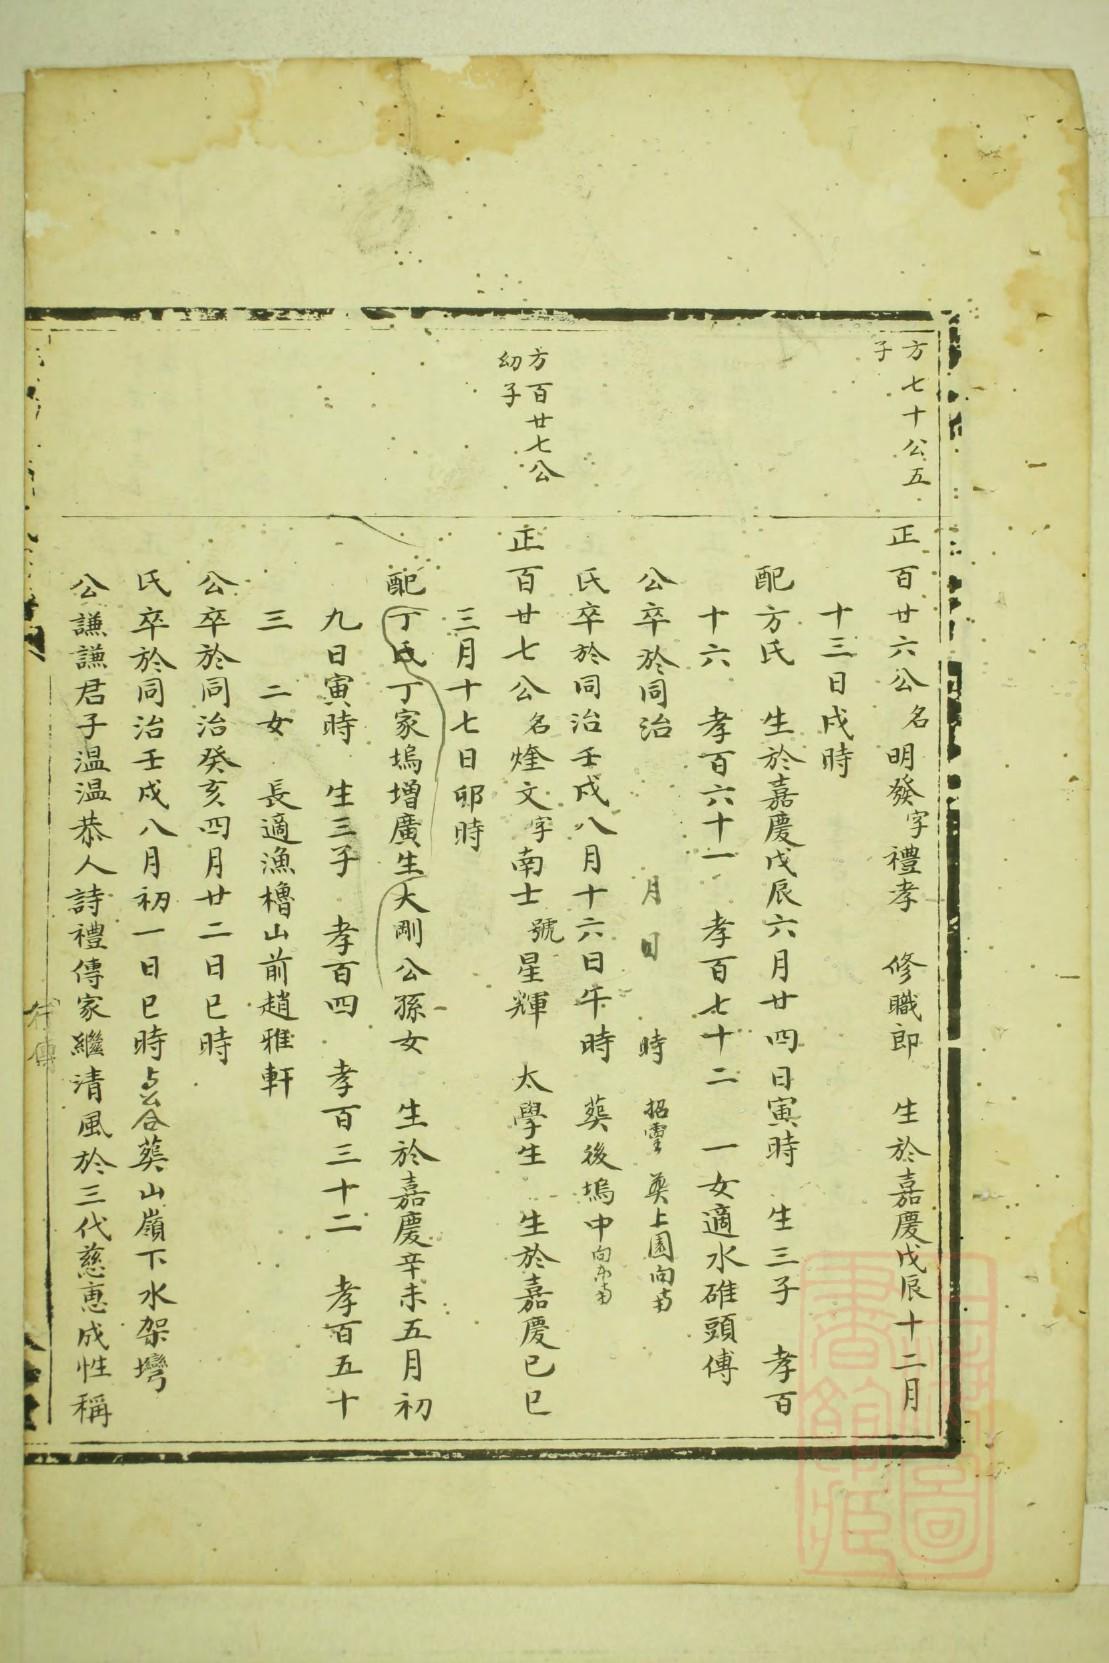 方七十公五
子
正百廿六公名明發字禮孝 修職郎 生於嘉慶戊辰十二月
十三日戌時
配方氏 生於嘉慶戊辰六月廿四日寅時 生三子 孝百
十六 孝百六十一 孝百七十二 一女適水碓頭傅
公卒於同治 月 日 時 招靈葬上園向南
氏卒於同治壬戌八月十六日午時 葬後塢中向南
方百廿七公
幼子
正百廿七公名煃文字南士 號星輝 太學生 生於嘉慶己巳
三月十七日卯時
配丁氏丁家塢增廣生大剛公孫女 生於嘉慶辛未五月初
九日寅時 生三子 孝百四 孝百三十二 孝百五十
三 二女 長適漁櫓山前趙雅軒
公卒於同治癸亥四月廿二日巳時
氏卒於同治壬戌八月初一日巳時与公合葬山嶺下水架塆
公謙謙君子温温恭人詩禮傳家繼清風於三代慈惠成性稱
行傳